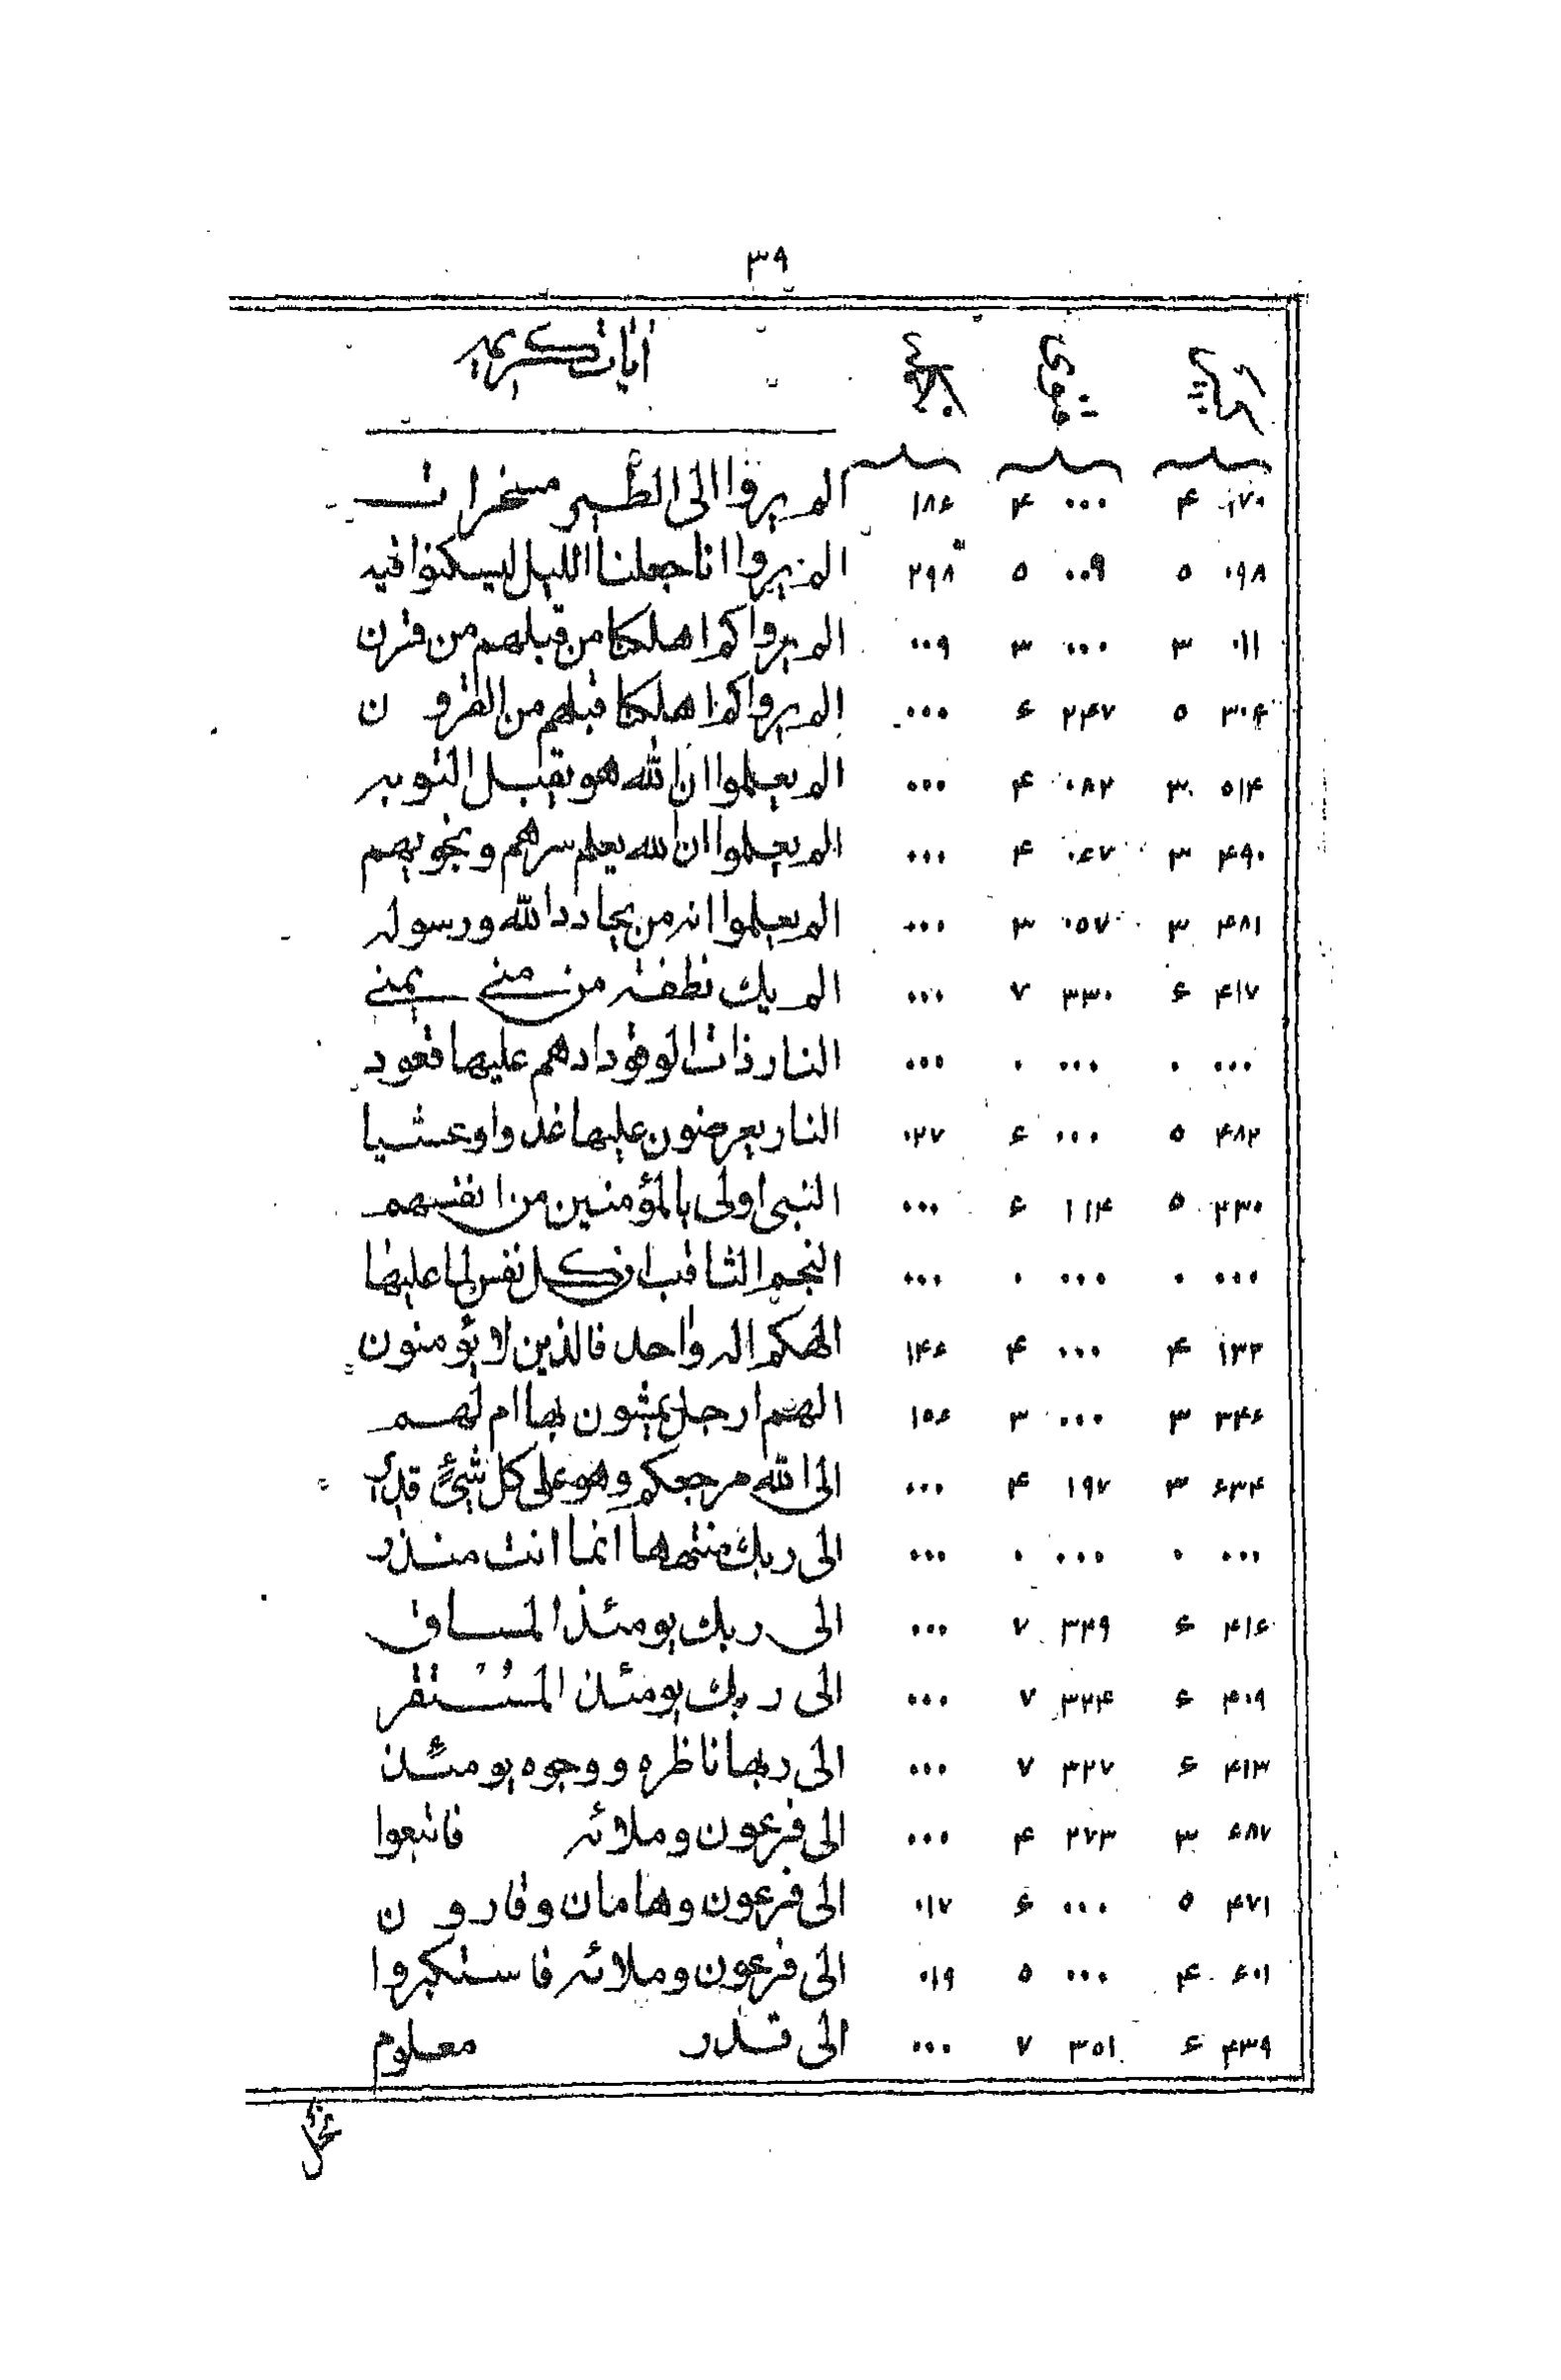 ٣٩
آيات كريمه
١٧٠ ۴ ٠٠٠ ۴ ١٨۶ الم يروا الى الطير مسخرات
٠٩٨ ۵ ٠٠٩ ۵ ٢٩٨ الم يروا انا جعلنا الليل ليسكنوا فيه
٠١١ ٣ ٠٠٠ ٣ ٠٠٩ الم يروا كم اهلكنا من قبلهم من قرن
٣٠۴ ۵ ٢۴٧ ۶ ٠٠٠ الم يروا كم اهلكنا قبلهم من القرون
۵١۴ ٣ ٠٨٢ ۴ ٠٠٠ الم يعلموا ان الله هو يقبل التوبه
۴٩٠ ٣ ٠۶٧ ۴ ٠٠٠ الم يعلموا ان الله يعلم سرهم ونجويهم
۴٨١ ٣ ٠۵٧ ٣ ٠٠٠ الم يعلموا انه من يحادد الله ورسوله
۴١٧ ۶ ٣٣٠ ٧ ٠٠٠ الم يك نطفة من منى يمنى
٠٠٠ ٠ ٠٠٠ ٠ ٠٠٠ النار ذات الوقود اذ هم عليها قعود
۴٨٢ ۵ ٠٠٠ ۶ ٠٢٧ النار يعرضون عليها غدوا وعشيا
٢٣٠ ۵ ١١۴ ۶ ٠٠٠ النبى اولى بالمؤمنين من انفسهم
٠٠٠ ٠ ٠٠٠ ٠ ٠٠٠ النجم الثاقب ان كل نفس لما عليها
١٣٢ ۴ ٠٠٠ ۴ ١۴۶ الهكم اله واحد فالذين لا يؤمنون
٣۴۶ ٣ ٠٠٠ ٣ ١۵۶ الهم ارجل يمشون بها ام لهم
۶٣۴ ٣ ١٩٧ ۴ ٠٠٠ الى الله مرجعكم وهو على كل شئ قدير
٠٠٠ ٠ ٠٠٠ ٠ ٠٠٠ الى ربك منتهها انما انت منذر
۴١۶ ۶ ٣٢٩ ٧ ٠٠٠ الى ربك يومئذ المساق
۴٠٩ ۶ ٣٢۴ ٧ ٠٠٠ الى ربك يومئذ المستقر
۴١٣ ۶ ٣٢٧ ٧ ٠٠٠ الى ربها ناظره ووجوه يومئذ
۶٨٧ ٣ ٢٧٣ ۴ ٠٠٠ الى فرعون وملائه فاتبعوا
۴٧١ ۵ ٠٠٠ ۶ ٠١٧ الى فرعون وهامان وقارون
۶٠١ ۴ ٠٠٠ ۵ ٠١٩ الى فرعون وملائه فاستكبروا
۴٣٩ ۶ ٣۵١ ٧ ٠٠٠ الى قدر معلوم